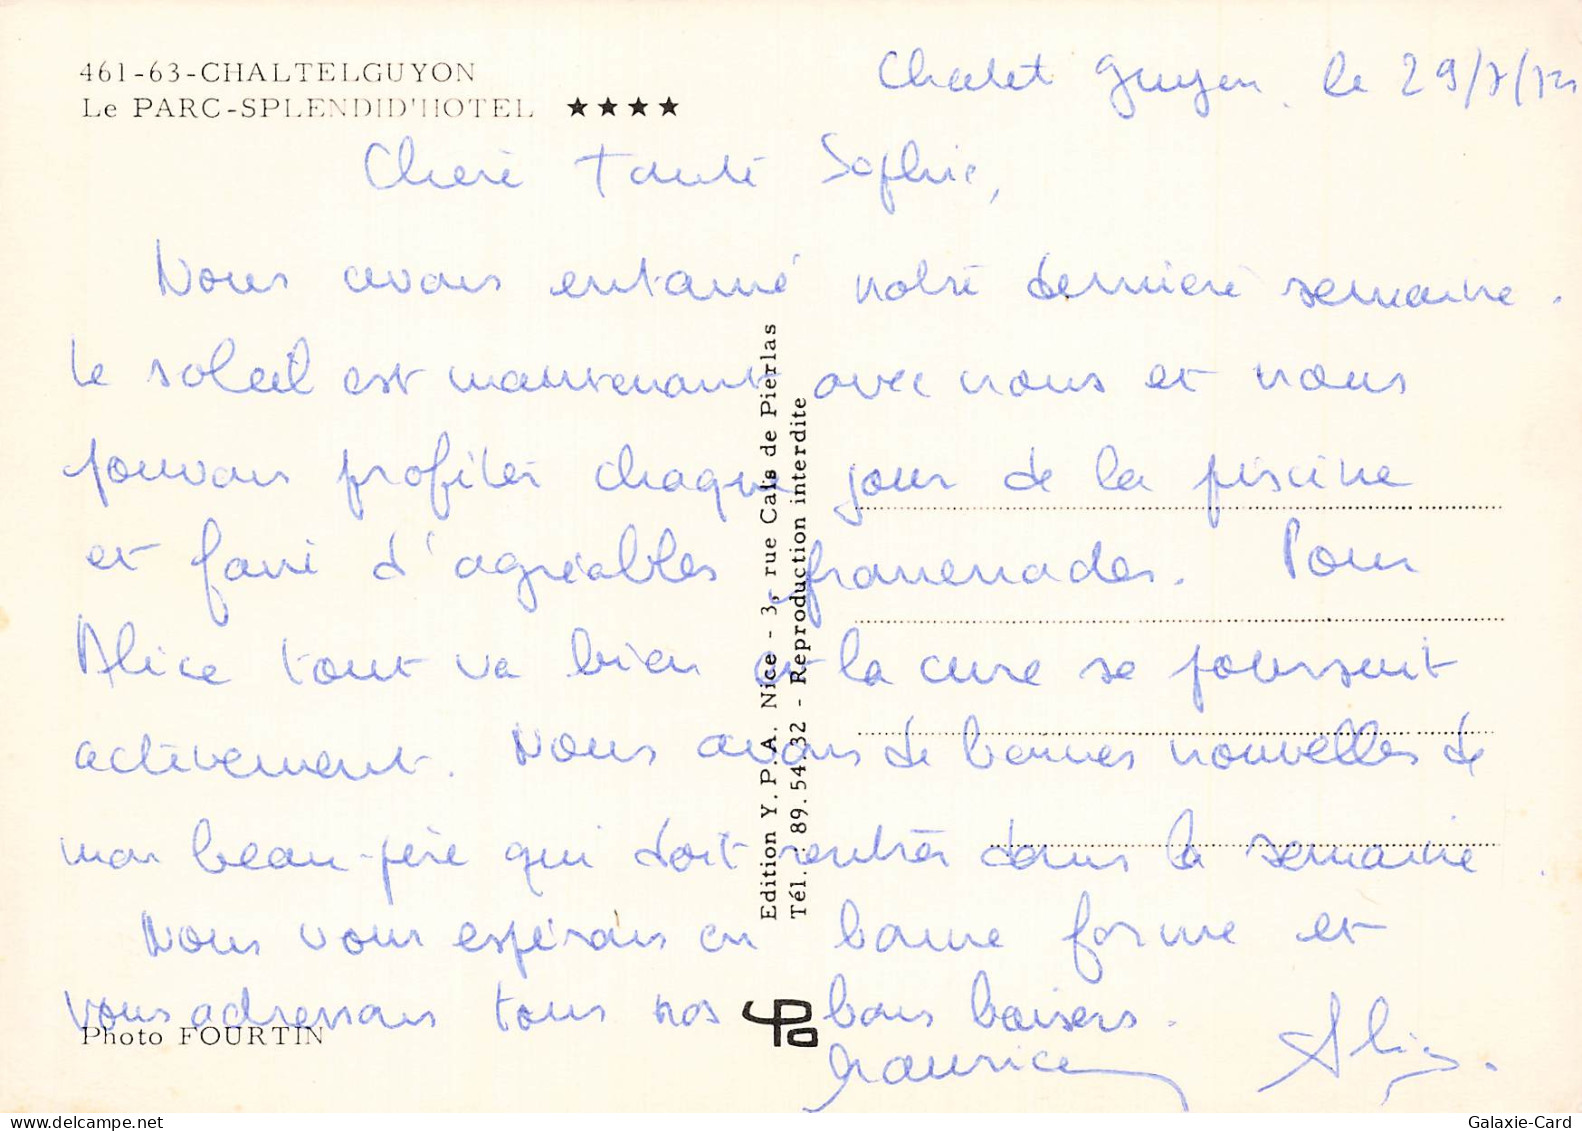 461-63-CHALTELGUYON
Le PARC-SPLENDID'HOTEL ★★★★
Chatel Guyon, le 29/7/72
Chère Tante Sophie,
Nous avons entamé notre dernière semaine.
Le soleil est maintenant avec nous et nous
pouvons profiter chaque jour de la piscine
et faire d'agréables promenades. Pour
Alice tout va bien et la cure se poursuit
activement. Nous avons de bonnes nouvelles de
mon beau-père qui doit rentrer dans la semaine.
Nous vous espérons en bonne forme et
vous adressons tous nos bons baisers.
Maurice Alice
Edition Y.P.A. Nice - 3, rue Cals de Pierlas
Tél. : 89.54.32 - Reproduction interdite
Photo FOURTIN
Galaxie-Card